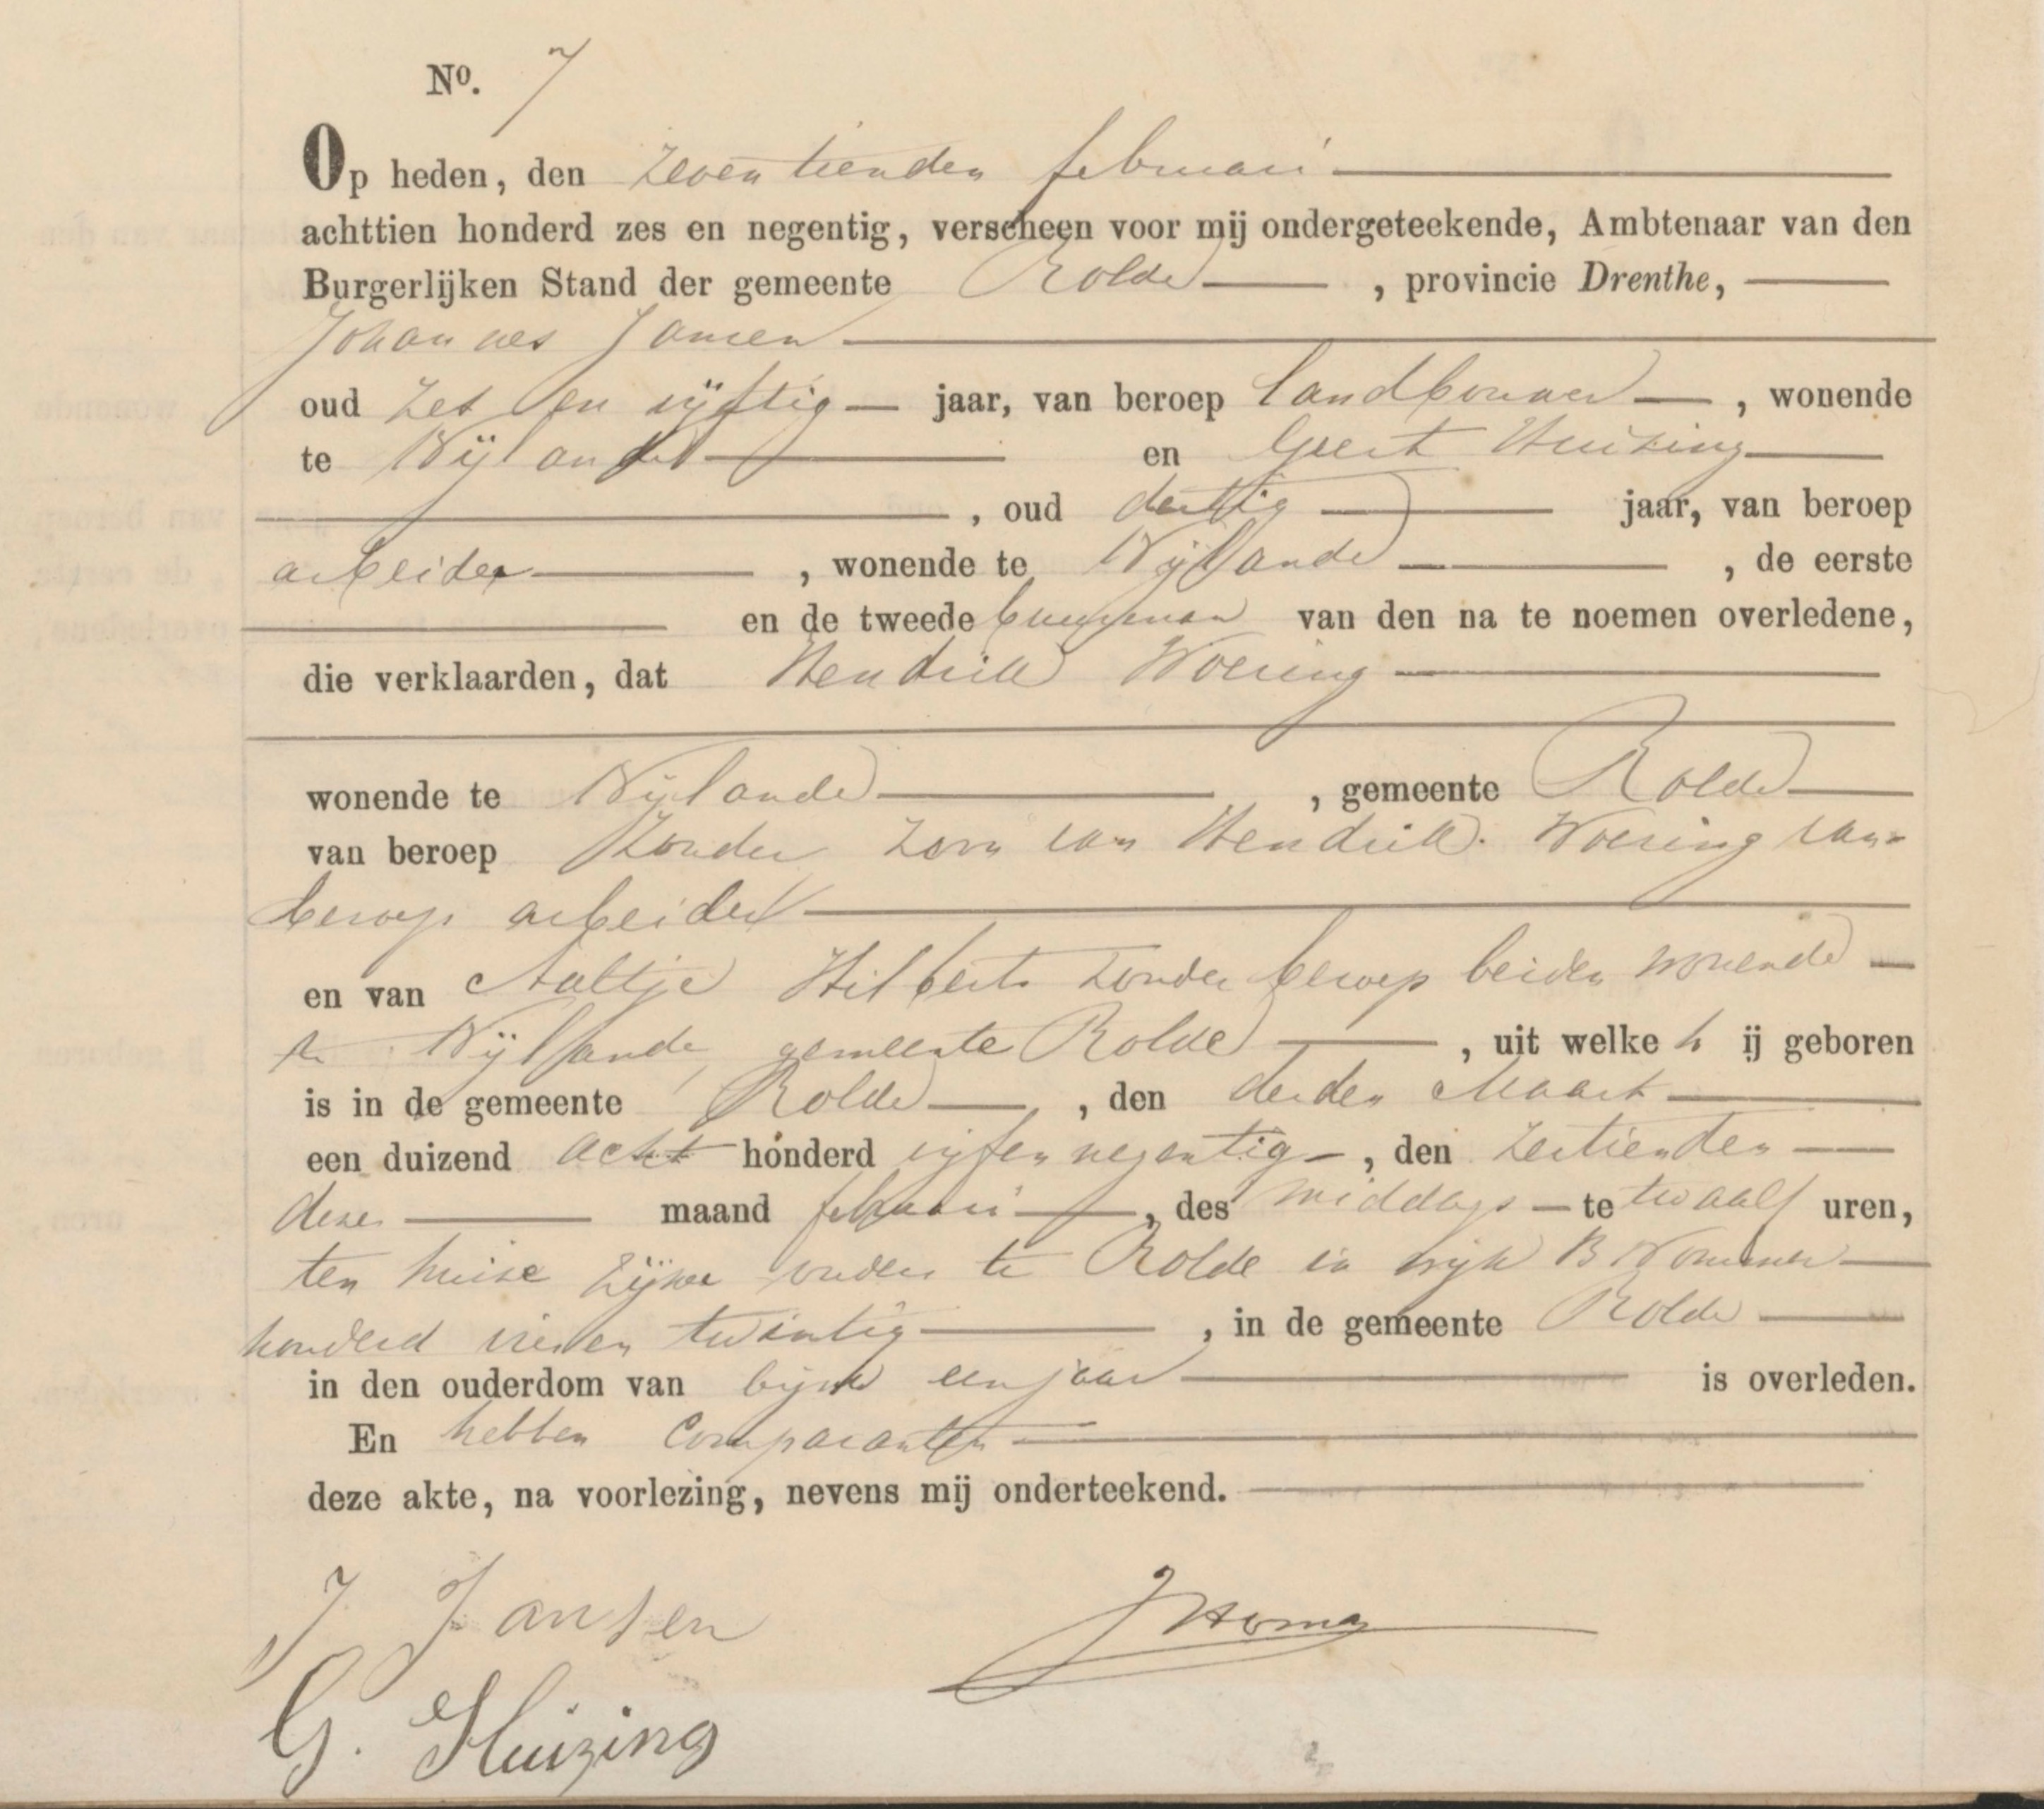 No. 7
Op heden, den zeventienden februari
achttien honderd zes en negentig, verscheen voor mij ondergeteekende, Ambtenaar van den
Burgerlijken Stand der gemeente Rolde , provincie Drenthe,
Johannes Jansen
oud zes en vijftig jaar, van beroep landbouwer , wonende
te Nijlande en Geert Huizing
, oud dertig jaar, van beroep
arbeider , wonende te Nijlande , de eerste
en de tweede buurman van den na te noemen overledene,
die verklaarden, dat Hendrik Woering
wonende te Nijlande , gemeente Rolde
van beroep zonder zoon van Hendrik Woering van
beroep arbeider
en van Aaltje Hilberts zonder beroep beiden wonende
te Nijlande, gemeente Rolde , uit welke h ij geboren
is in de gemeente Rolde , den derden Maart
een duizend acht honderd vijfennegentig , den zestienden
dezer maand februari , des middags te twaalf uren,
ten huize zijner ouders te Rolde in wijk B Nommer
honderd vierentwintig , in de gemeente Rolde
in den ouderdom van bijna een jaar is overleden.
En hebben Comparanten
deze akte, na voorlezing, nevens mij onderteekend.
J Jansen
G. Huizing